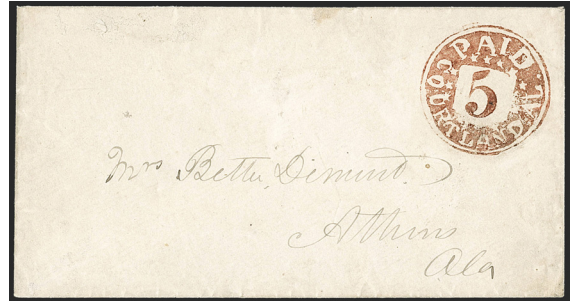 PAID
5
COURTLAND AL
Mrs Bettie Dement
Athens
Ala